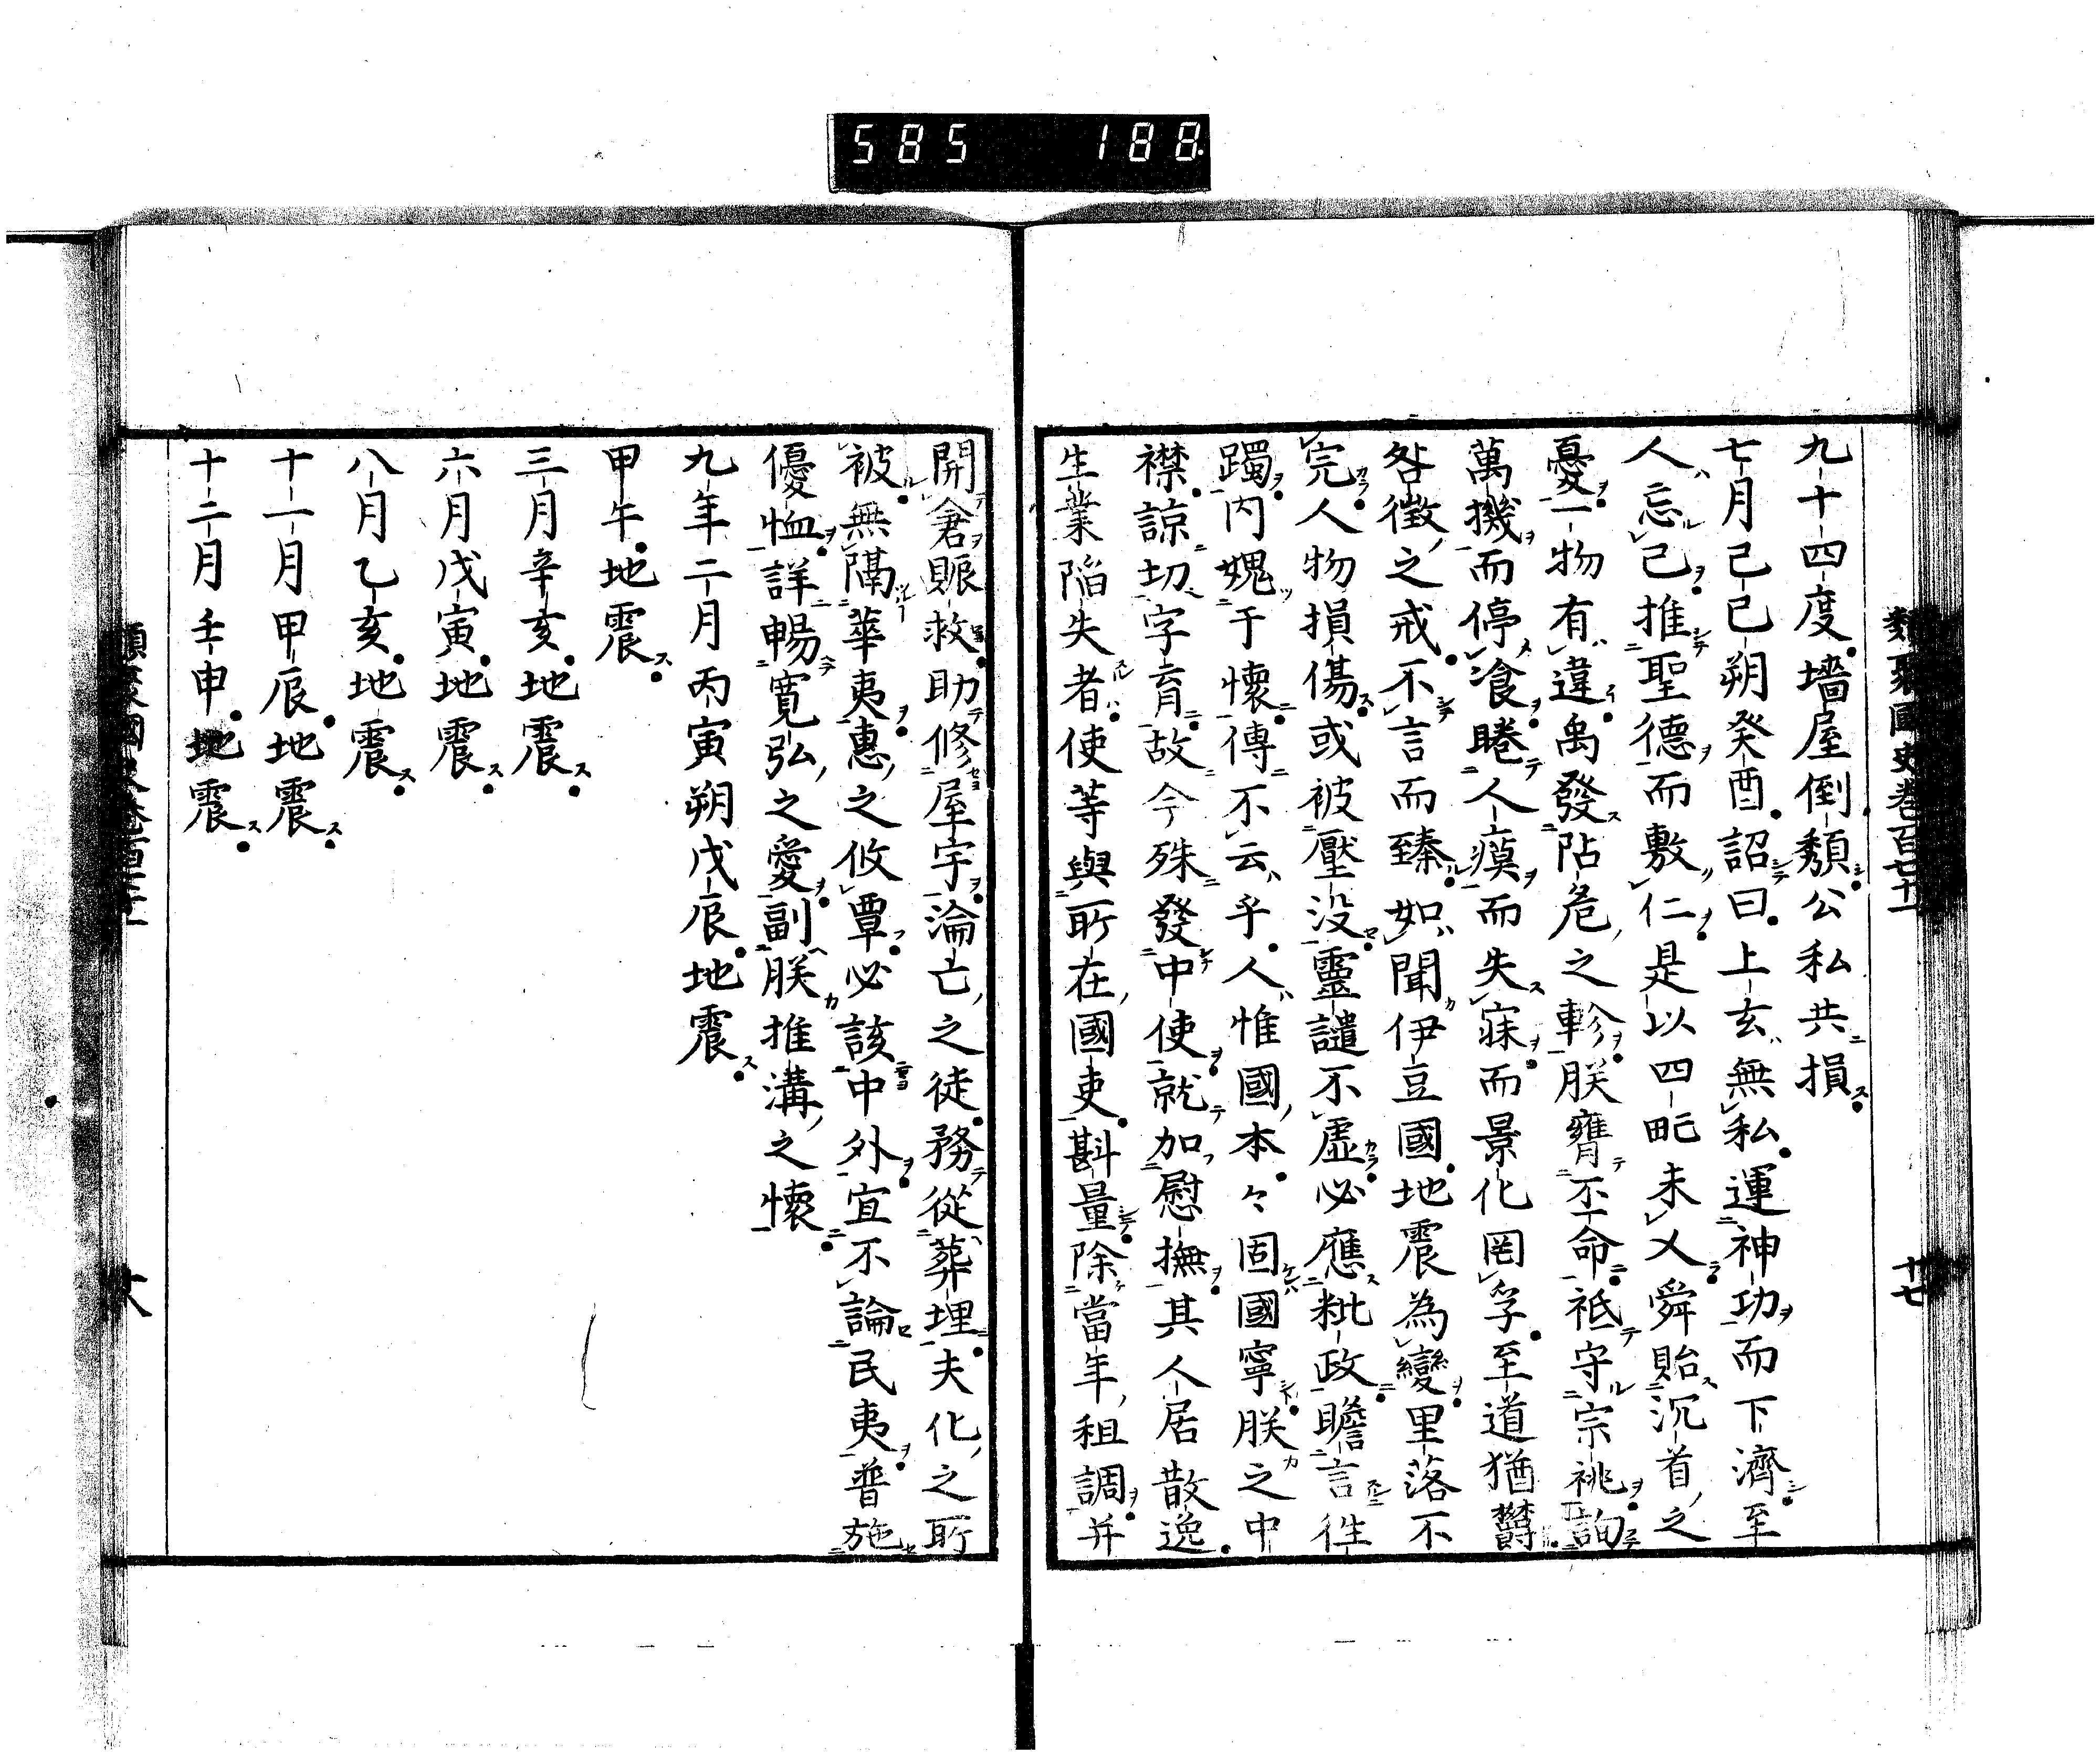 585 188
類聚國史卷百七十一 十七
九十四度墻屋倒頽公私共損
七月己巳朔癸酉詔曰上玄無私運神功而下濟至
人忘己推聖德而敷仁是以四㽗未乂舜貽沉首之
憂一物有違禹發阽危之軫朕膺丕命祗守宗祧詢
萬機而停飡睠人瘼而失寐而景化罔孚至道猶欝
咎徴之戒不言而臻如聞伊豆國地震為變里落不
完人物損傷或被壓没靈譴不虚必應粃政瞻言往
躅内媿于懷傳不云乎人惟國本々固國寧朕之中
襟諒切字育故今殊發中使就加慰撫其人居散逸
生業陥失者使等與所在國吏斟量除當年租調并
開倉賑救助修屋宇淪亡之徒務從葬埋夫化之所
被無隔華夷惠之攸覃必該中外宜不論民夷普施
優恤詳暢寛弘之愛副朕推溝之懷
九年二月丙寅朔戊辰地震
甲午地震
三月辛亥地震
六月戊寅地震
八月乙亥地震
十一月甲辰地震
十二月壬申地震